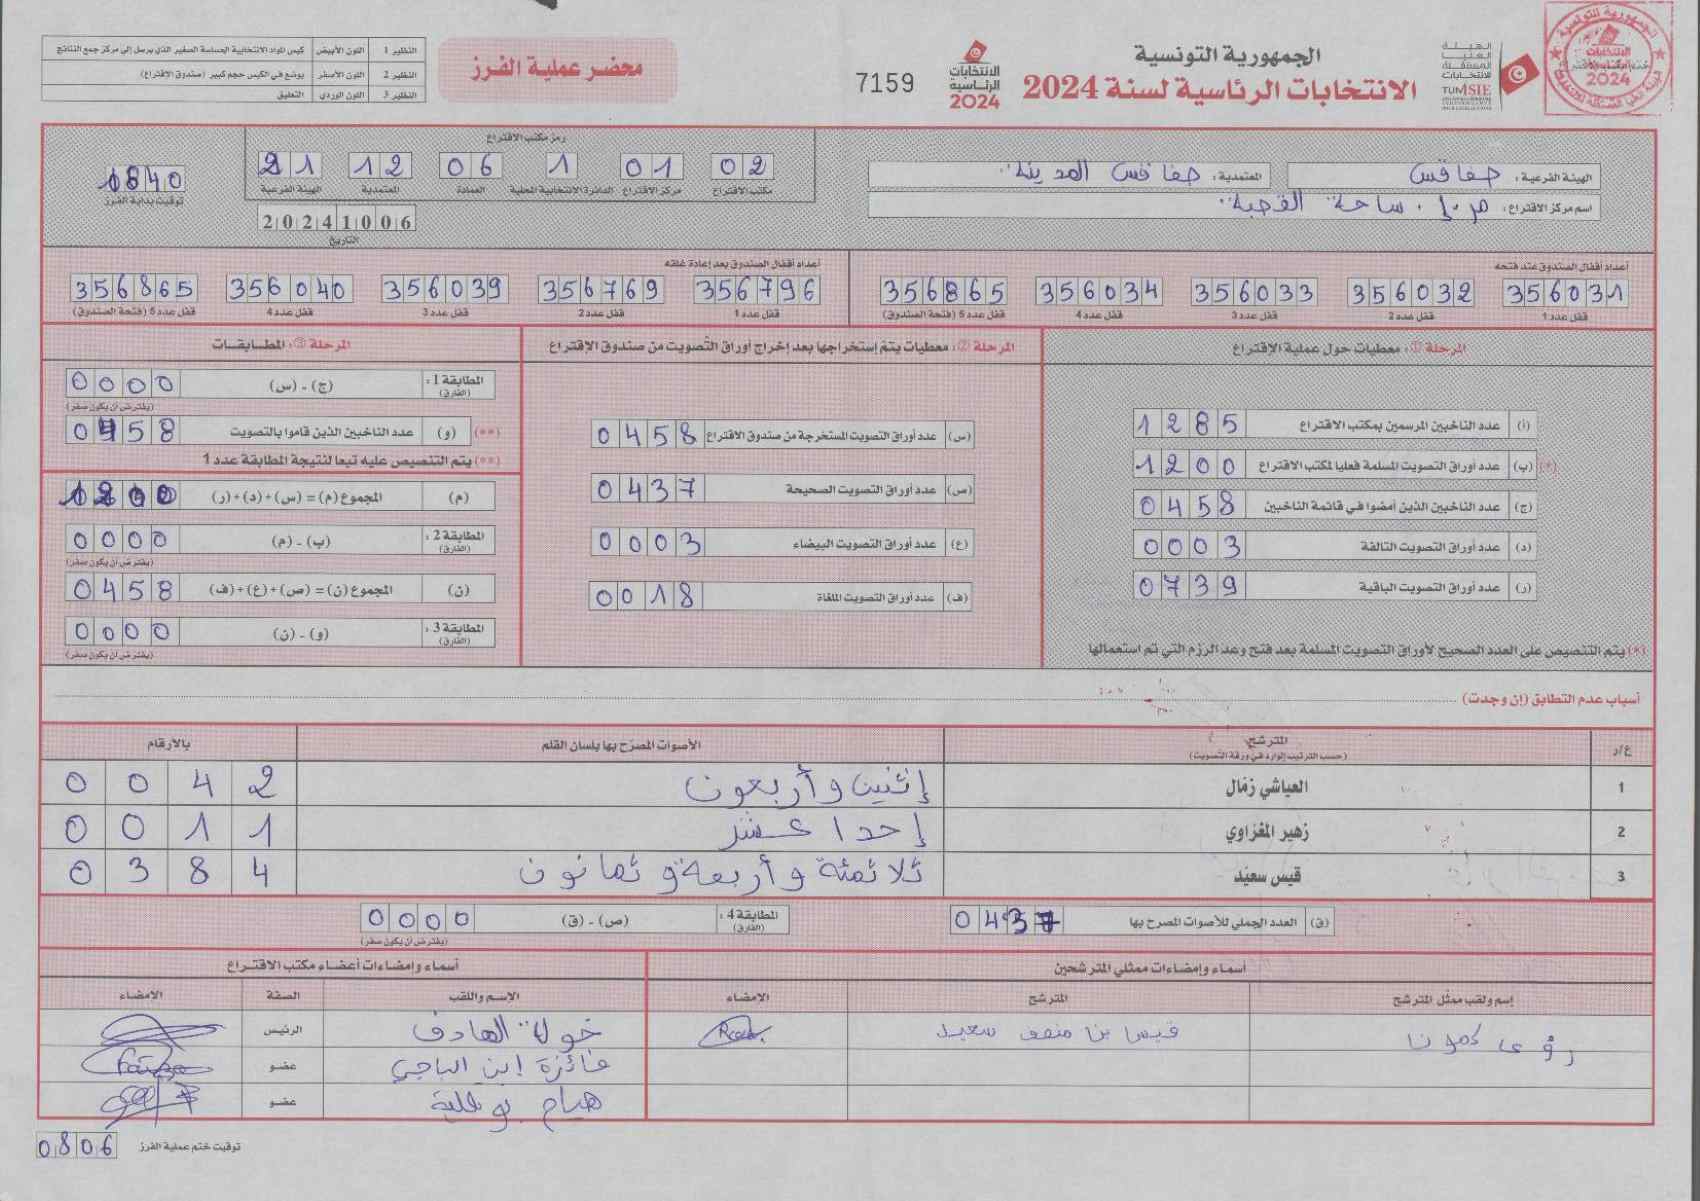 الجمهورية التونسية
الانتخابات الرئاسية لسنة 2024
الهيئة العليا المستقلة للانتخابات
TUNISIE
الانتخابات الرئاسية 2024
7159
محضر عملية الفرز
النظير 1 اللون الأبيض كيس المواد الانتخابية الحساسة الصغير الذي يرسل إلى مركز جمع النتائج
النظير 2 اللون الأصفر يوضع في الكيس حجم كبير (صندوق الاقتراع)
النظير 3 اللون الوردي التعليق
الهيئة الفرعية: صفاقس
المعتمدية: صفاقس المدينة
اسم مركز الاقتراع: م.إ. ساحة القصبة
رمز مكتب الاقتراع
02 01 1 06 12 21
مكتب الاقتراع مركز الاقتراع الدائرة الانتخابية المحلية العمادة المعتمدية الهيئة الفرعية
20241006
التاريخ
1840
توقيت بداية الفرز
أعداد أقفال الصندوق عند فتحه
356031 356032 356033 356034 356865
قفل عدد 1 قفل عدد 2 قفل عدد 3 قفل عدد 4 قفل عدد 5 (فتحة الصندوق)
أعداد أقفال الصندوق بعد إعادة غلقه
356796 356769 356039 356040 356865
قفل عدد 1 قفل عدد 2 قفل عدد 3 قفل عدد 4 قفل عدد 5 (فتحة الصندوق)
المرحلة ①: معطيات حول عملية الإقتراع
(أ) عدد الناخبين المرسمين بمكتب الاقتراع 1285
(*) (ب) عدد أوراق التصويت المسلمة فعليا لمكتب الاقتراع 1200
(ج) عدد الناخبين الذين أمضوا في قائمة الناخبين 0458
(د) عدد أوراق التصويت التالفة 0003
(ر) عدد أوراق التصويت الباقية 0739
(*) يتم التنصيص على العدد الصحيح لأوراق التصويت المسلمة بعد فتح وعد الرزم التي تم استعمالها
المرحلة ②: معطيات يتم إستخراجها بعد إخراج أوراق التصويت من صندوق الإقتراع
(س) عدد أوراق التصويت المستخرجة من صندوق الاقتراع 0458
(ص) عدد أوراق التصويت الصحيحة 0437
(ع) عدد أوراق التصويت البيضاء 0003
(ف) عدد أوراق التصويت الملغاة 0018
المرحلة ③: المطابقات
المطابقة 1: (الفارق) (ج) - (س) 0000
(يفترض ان يكون صفر)
(**) (و) عدد الناخبين الذين قاموا بالتصويت 0458
(**) يتم التنصيص عليه تبعا لنتيجة المطابقة عدد 1
(م) المجموع (م) = (س) + (د) + (ر) 1200
المطابقة 2: (الفارق) (ب) - (م) 0000
(يفترض ان يكون صفر)
(ن) المجموع (ن) = (ص) + (ع) + (ف) 0458
المطابقة 3: (الفارق) (و) - (ن) 0000
(يفترض ان يكون صفر)
أسباب عدم التطابق (إن وجدت)
ع/د المترشح (حسب الترتيب الوارد في ورقة التصويت) الأصوات المصرح بها بلسان القلم بالأرقام
1 العياشي زمال إثنين وأربعون 0042
2 زهير المغزاوي إحدا عشر 0011
3 قيس سعيد ثلاثمئة وأربعة وثمانون 0384
(ق) العدد الجملي للأصوات المصرح بها 0437
المطابقة 4: (الفارق) (ص) - (ق) 0000
(يفترض ان يكون صفر)
أسماء وإمضاءات ممثلي المترشحين
إسم ولقب ممثل المترشح المترشح الامضاء
رؤى كمون قيس بن منصف سعيد
أسماء وإمضاءات أعضاء مكتب الاقتراع
الإسم واللقب الصفة الامضاء
خولة الهادف الرئيس
فائزة ابن الباجي عضو
هيام بوعلية عضو
توقيت ختم عملية الفرز 0806